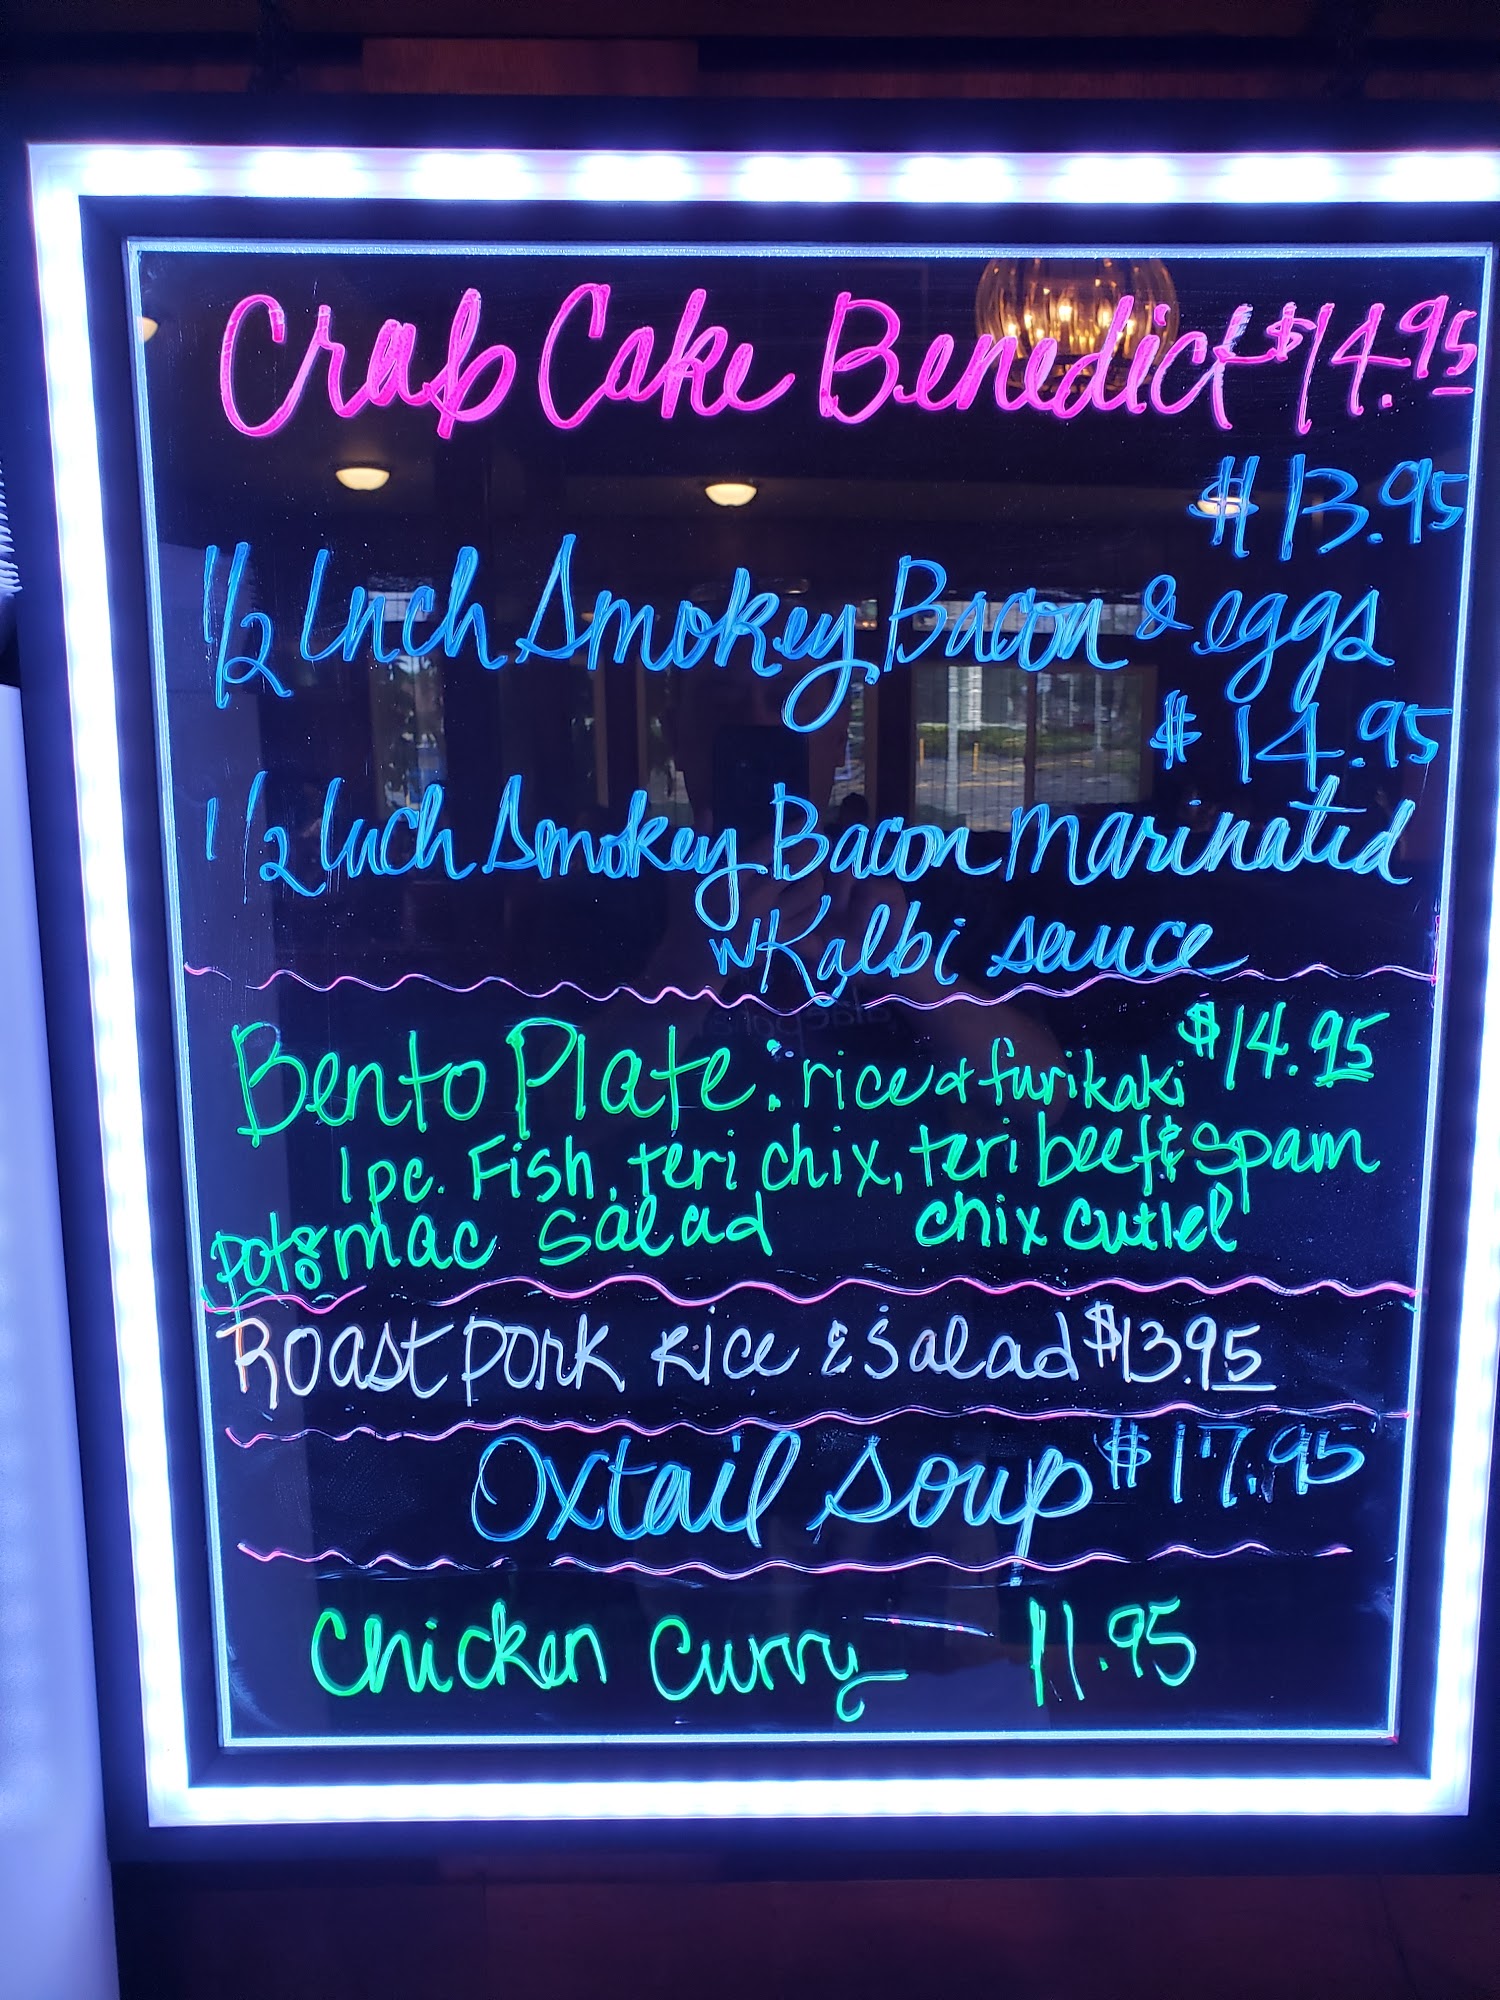 Crab Cake Benedict $14.95
$13.95
1/2 Inch Smokey Bacon & eggs
$14.95
1/2 Inch Smokey Bacon marinated
w Kalbi sauce
Bento Plate: rice & furikaki $14.95
1pc. Fish, teri chix, teri beef & Spam
pot & mac salad chix cutlet
Roast pork Rice & Salad $13.95
Oxtail Soup $17.95
Chicken Curry — 11.95